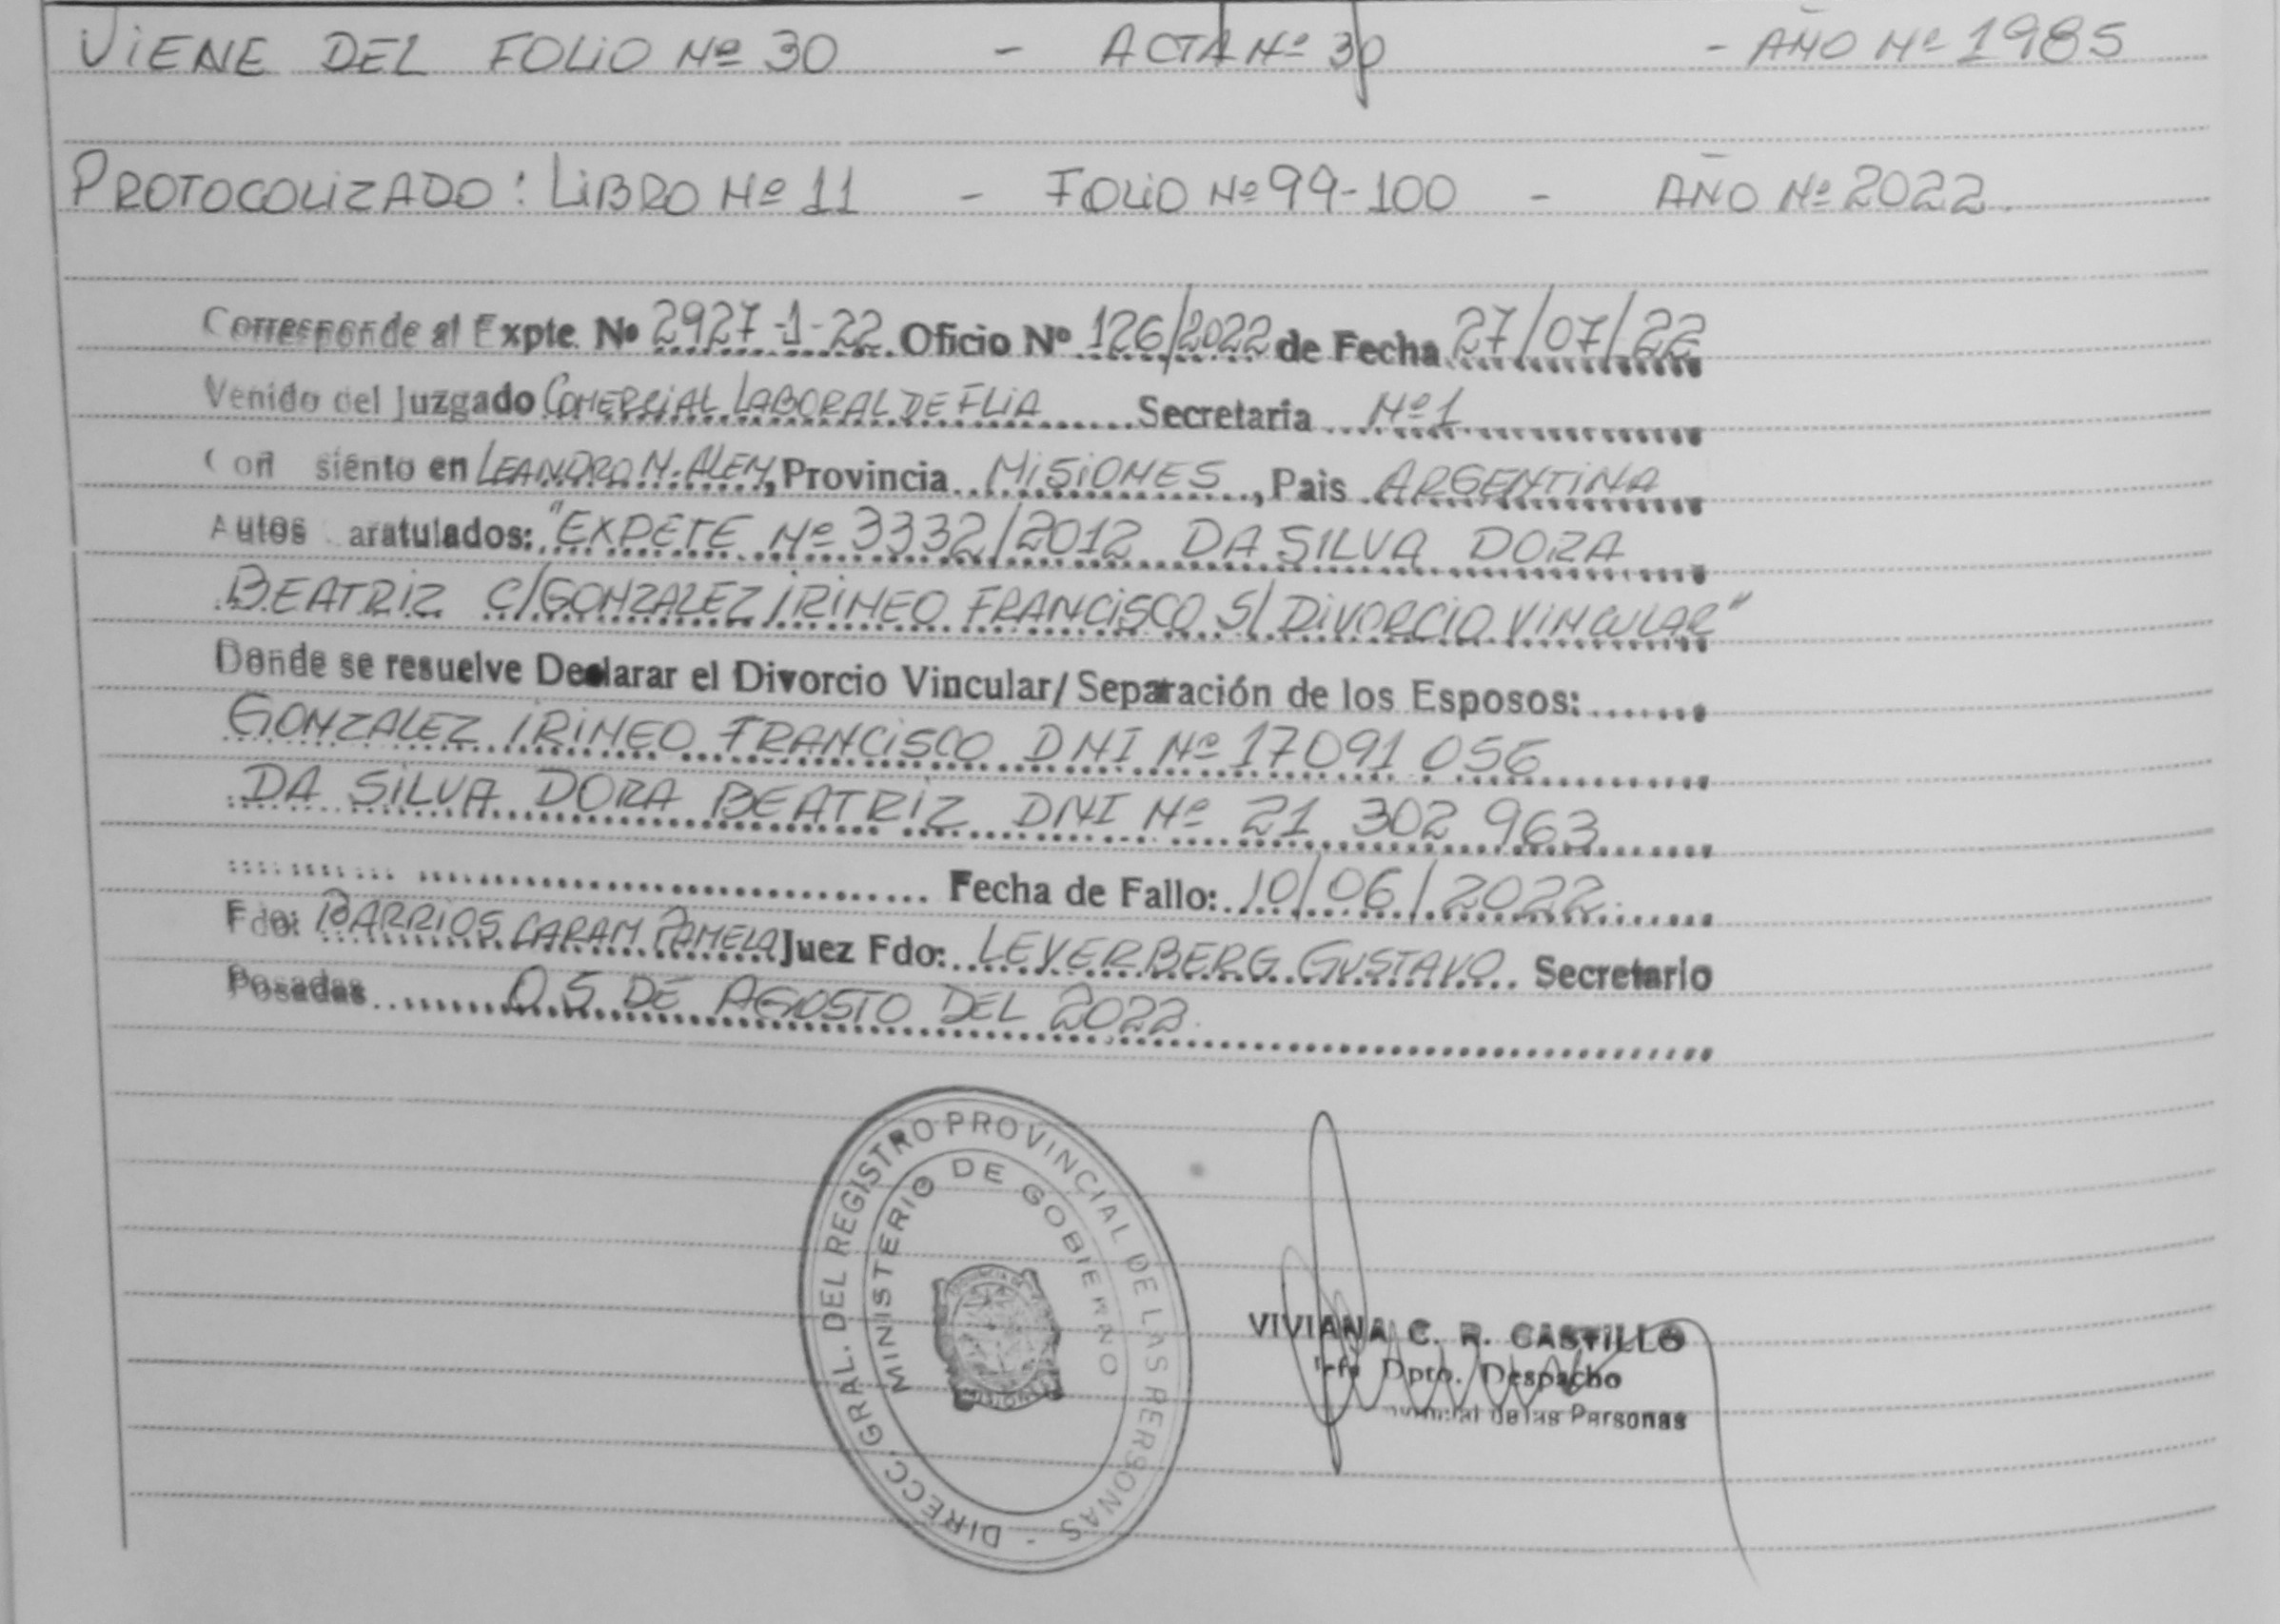 VIENE DEL FOLIO Nº 30 - ACTA Nº 30 - AÑO Nº 1985
PROTOCOLIZADO: LIBRO Nº 11 - FOLIO Nº 99-100 - AÑO Nº 2022.
Corresponde al Expte. Nº 2927-1-22 Oficio Nº 126/2022 de Fecha 27/07/22
Venido del Juzgado COMERCIAL LABORAL DE FLIA Secretaria Nº 1
Con siento en LEANDRO N. ALEM, Provincia MISIONES, Pais ARGENTINA
Autos aratulados: "EXPETE Nº 3332/2012 DA SILVA DORA
BEATRIZ C/GONZALEZ IRINEO FRANCISCO S/ DIVORCIO VINCULAR"
Donde se resuelve Declarar el Divorcio Vincular/ Separación de los Esposos:
GONZALEZ IRINEO FRANCISCO DNI Nº 17091 056
DA SILVA DORA BEATRIZ DNI Nº 21 302 963
Fecha de Fallo: 10/06/2022.
Fdo: BARRIOS CARAM PAMELA Juez Fdo: LEVERBERG GUSTAVO Secretario
Posadas 05 DE AGOSTO DEL 2022.
DIRECC. GRAL. DEL REGISTRO PROVINCIAL DE LAS PERSONAS -
MINISTERIO DE GOBIERNO
VIVIANA C. R. CASTILLO
Dpto. Despacho
de las Personas